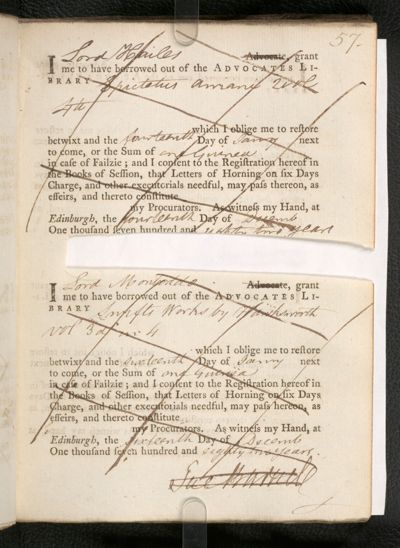 57.
I Lord Hailes Advocate, grant
me to have borrowed out of the ADVOCATES LI-
BRARY Epictetus Arriani 2 vol
4to
which I oblige me to restore
betwixt and the fourteenth Day of Janry next
to come, or the Sum of one Guinea
in case of Failzie; and I consent to the Registration hereof in
the Books of Session, that Letters of Horning on six Days
Charge, and other executorials needful, may pass thereon, as
effeirs, and thereto constitute
my Procurators. As witness my Hand, at
Edinburgh, the fourteenth Day of Decemb
One thousand seven hundred and eighty two years
I Lord Monboddo Advocate, grant
me to have borrowed out of the ADVOCATES LI-
BRARY Swifts Works by Hawkesworth
vol 3d 4
which I oblige me to restore
betwixt and the sixteenth Day of Janry next
to come, or the Sum of one Guinea
in case of Failzie; and I consent to the Registration hereof in
the Books of Session, that Letters of Horning on six Days
Charge, and other executorials needful, may pass hereon, as
effeirs, and thereto constitute
my Procurators. As witness my Hand, at
Edinburgh, the sixteenth Day of Decemb
One thousand seven hundred and eighty two years.